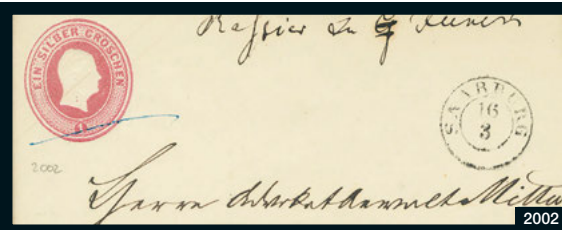 EIN SILBER GROSCHEN
1
SAARBURG
16
3
2002
Herrn Advokatanwalt
2002